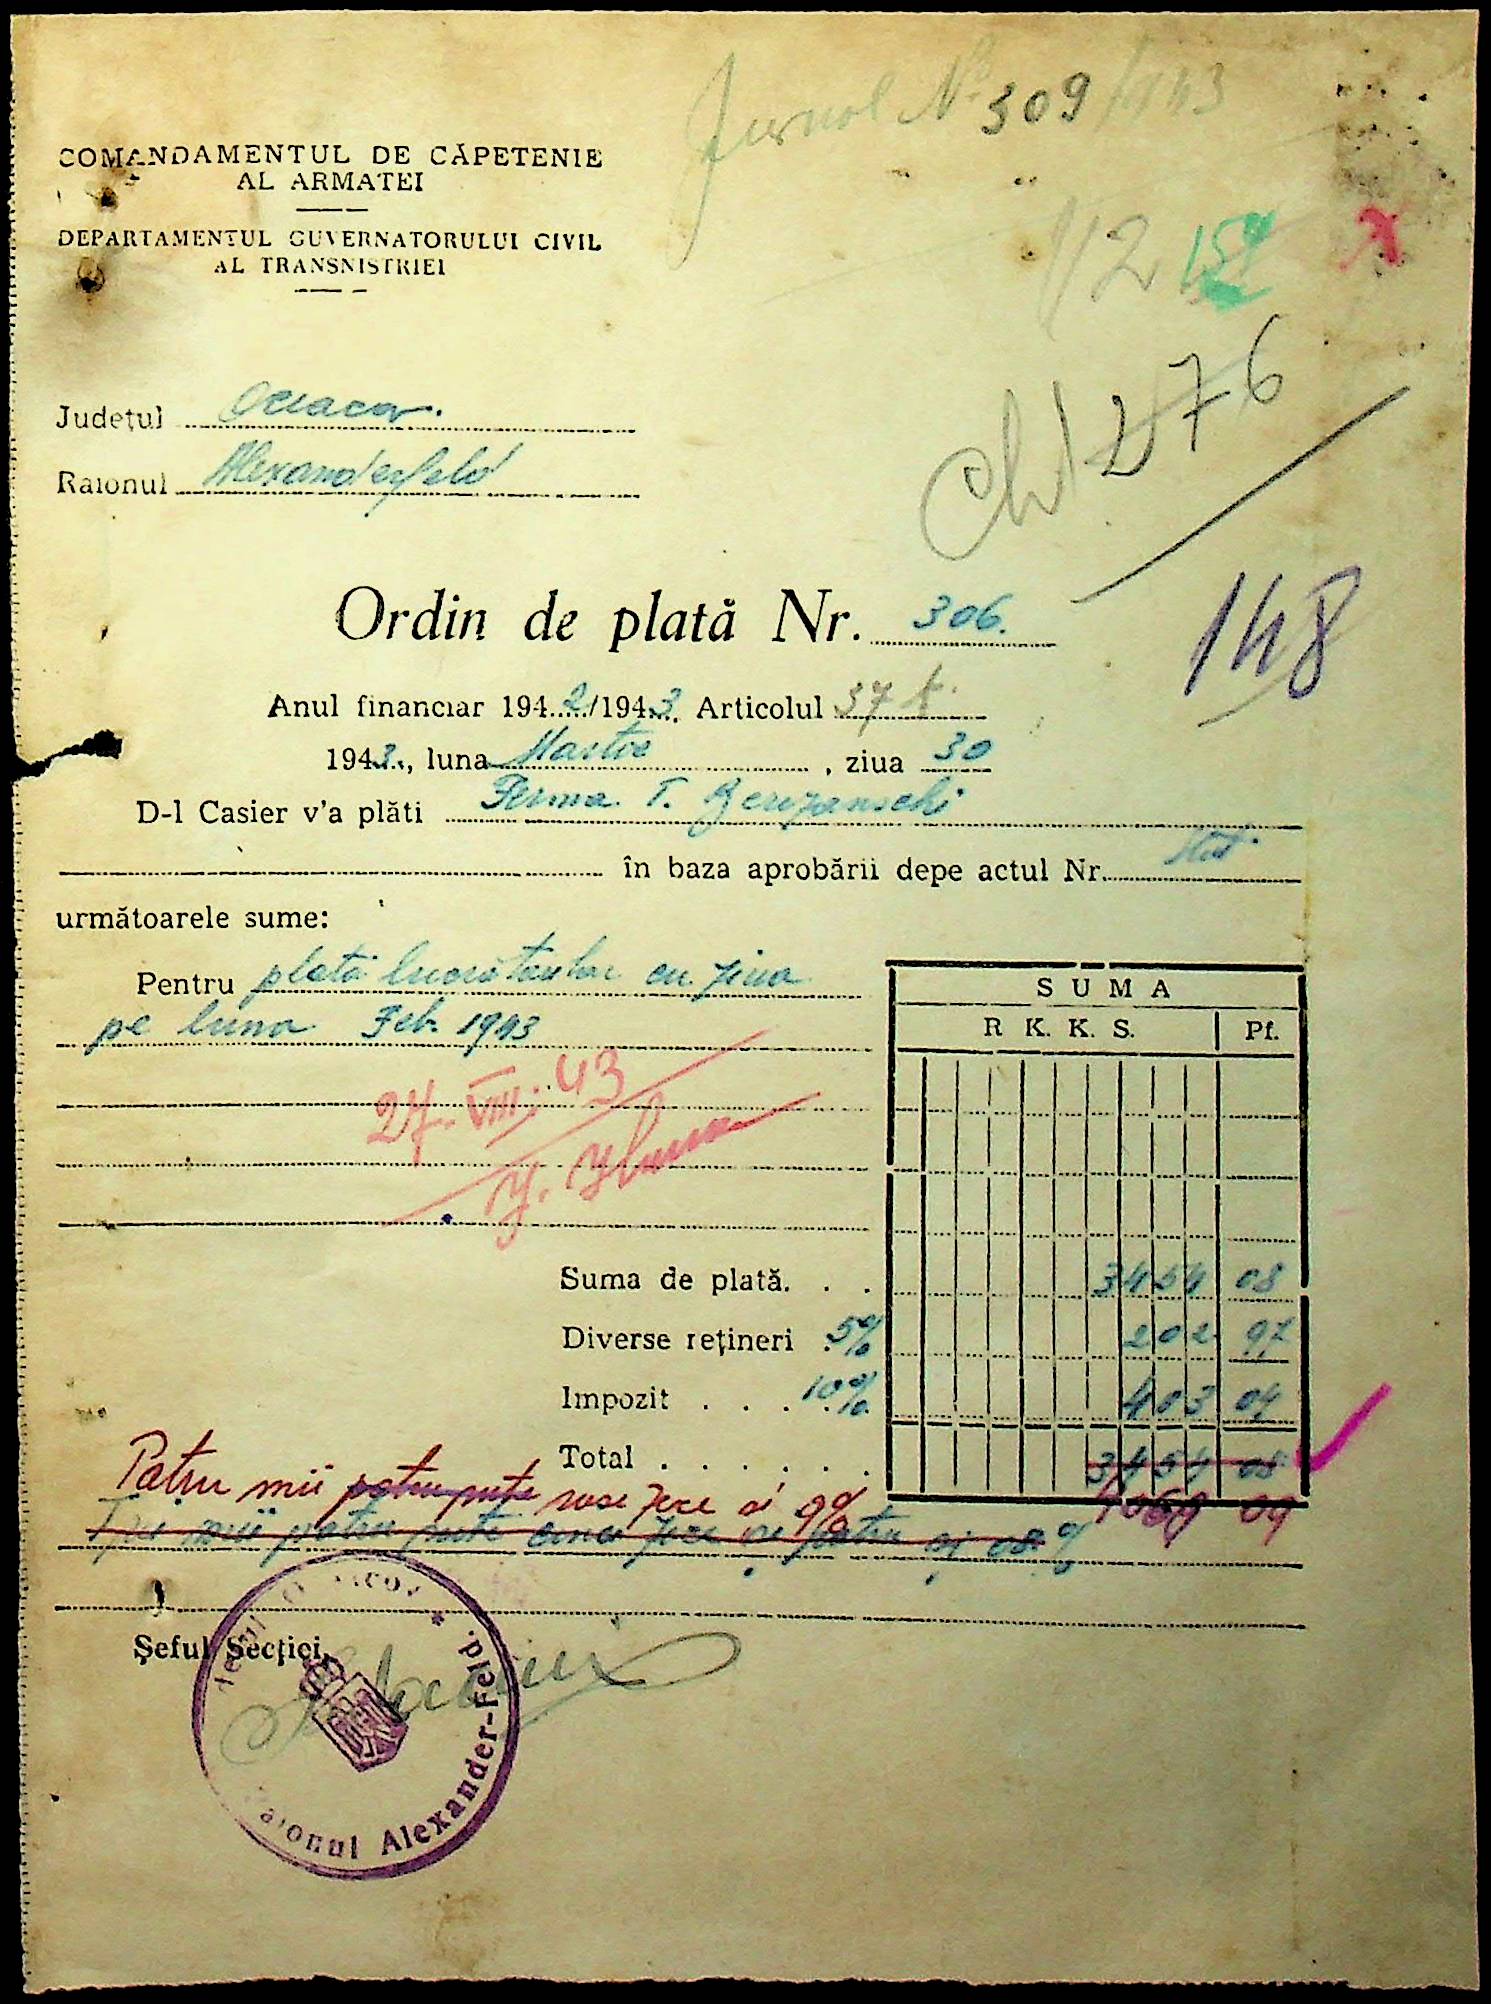 Jurnal No 309/943
COMANDAMENTUL DE CĂPETENIE
AL ARMATEI
DEPARTAMENTUL GUVERNATORULUI CIVIL
AL TRANSNISTRIEI
112 154
Județul Oceacov.
Raionul Alexanderfeld
Ch/276
148
Ordin de plată Nr. 306.
Anul financiar 1942/1943. Articolul 37
1943., luna Martie, ziua 30
D-l Casier v'a plăti Ferma T. Berezanschi
în baza aprobării depe actul Nr. Stat.
următoarele sume:
Pentru plata lucrătorilor cu ziua
pe luna Feb. 1943
SUMA
R.K.K.S. Pf.
27.VIII.43
Suma de plată. . . 3454 08
Diverse rețineri 5% 202 97
Impozit . . . 10% 403 04
Total . . . . . . 3454 08
Patru mii patru sute șase zece și 09 4060 09
Trei mii patru sute cinci zece și patru și 08
Șeful Secției,
Raionul Alexander-Feld.